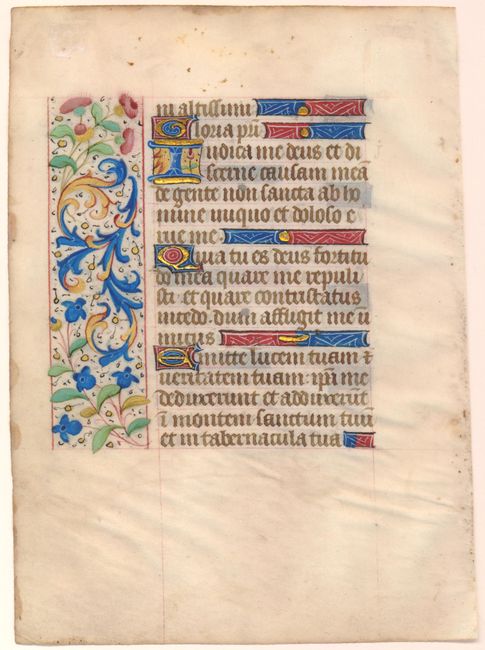 in altissimi
Gloria pri
Iudica me deus et di
scerne causam meã
de gente non sancta ab ho
mine iniquo et doloso e
rue me.
Quia tu es deus fortitu
do mea quare me repuli
sti et quare contristatus
incedo. dum affligit me ĩ
imicus
Emitte lucem tuam ⁊
veritatem tuam: ip̃a me
deduxerunt et adduxerũt
ĩ montem sanctum tuũ
et in tabernacula tua